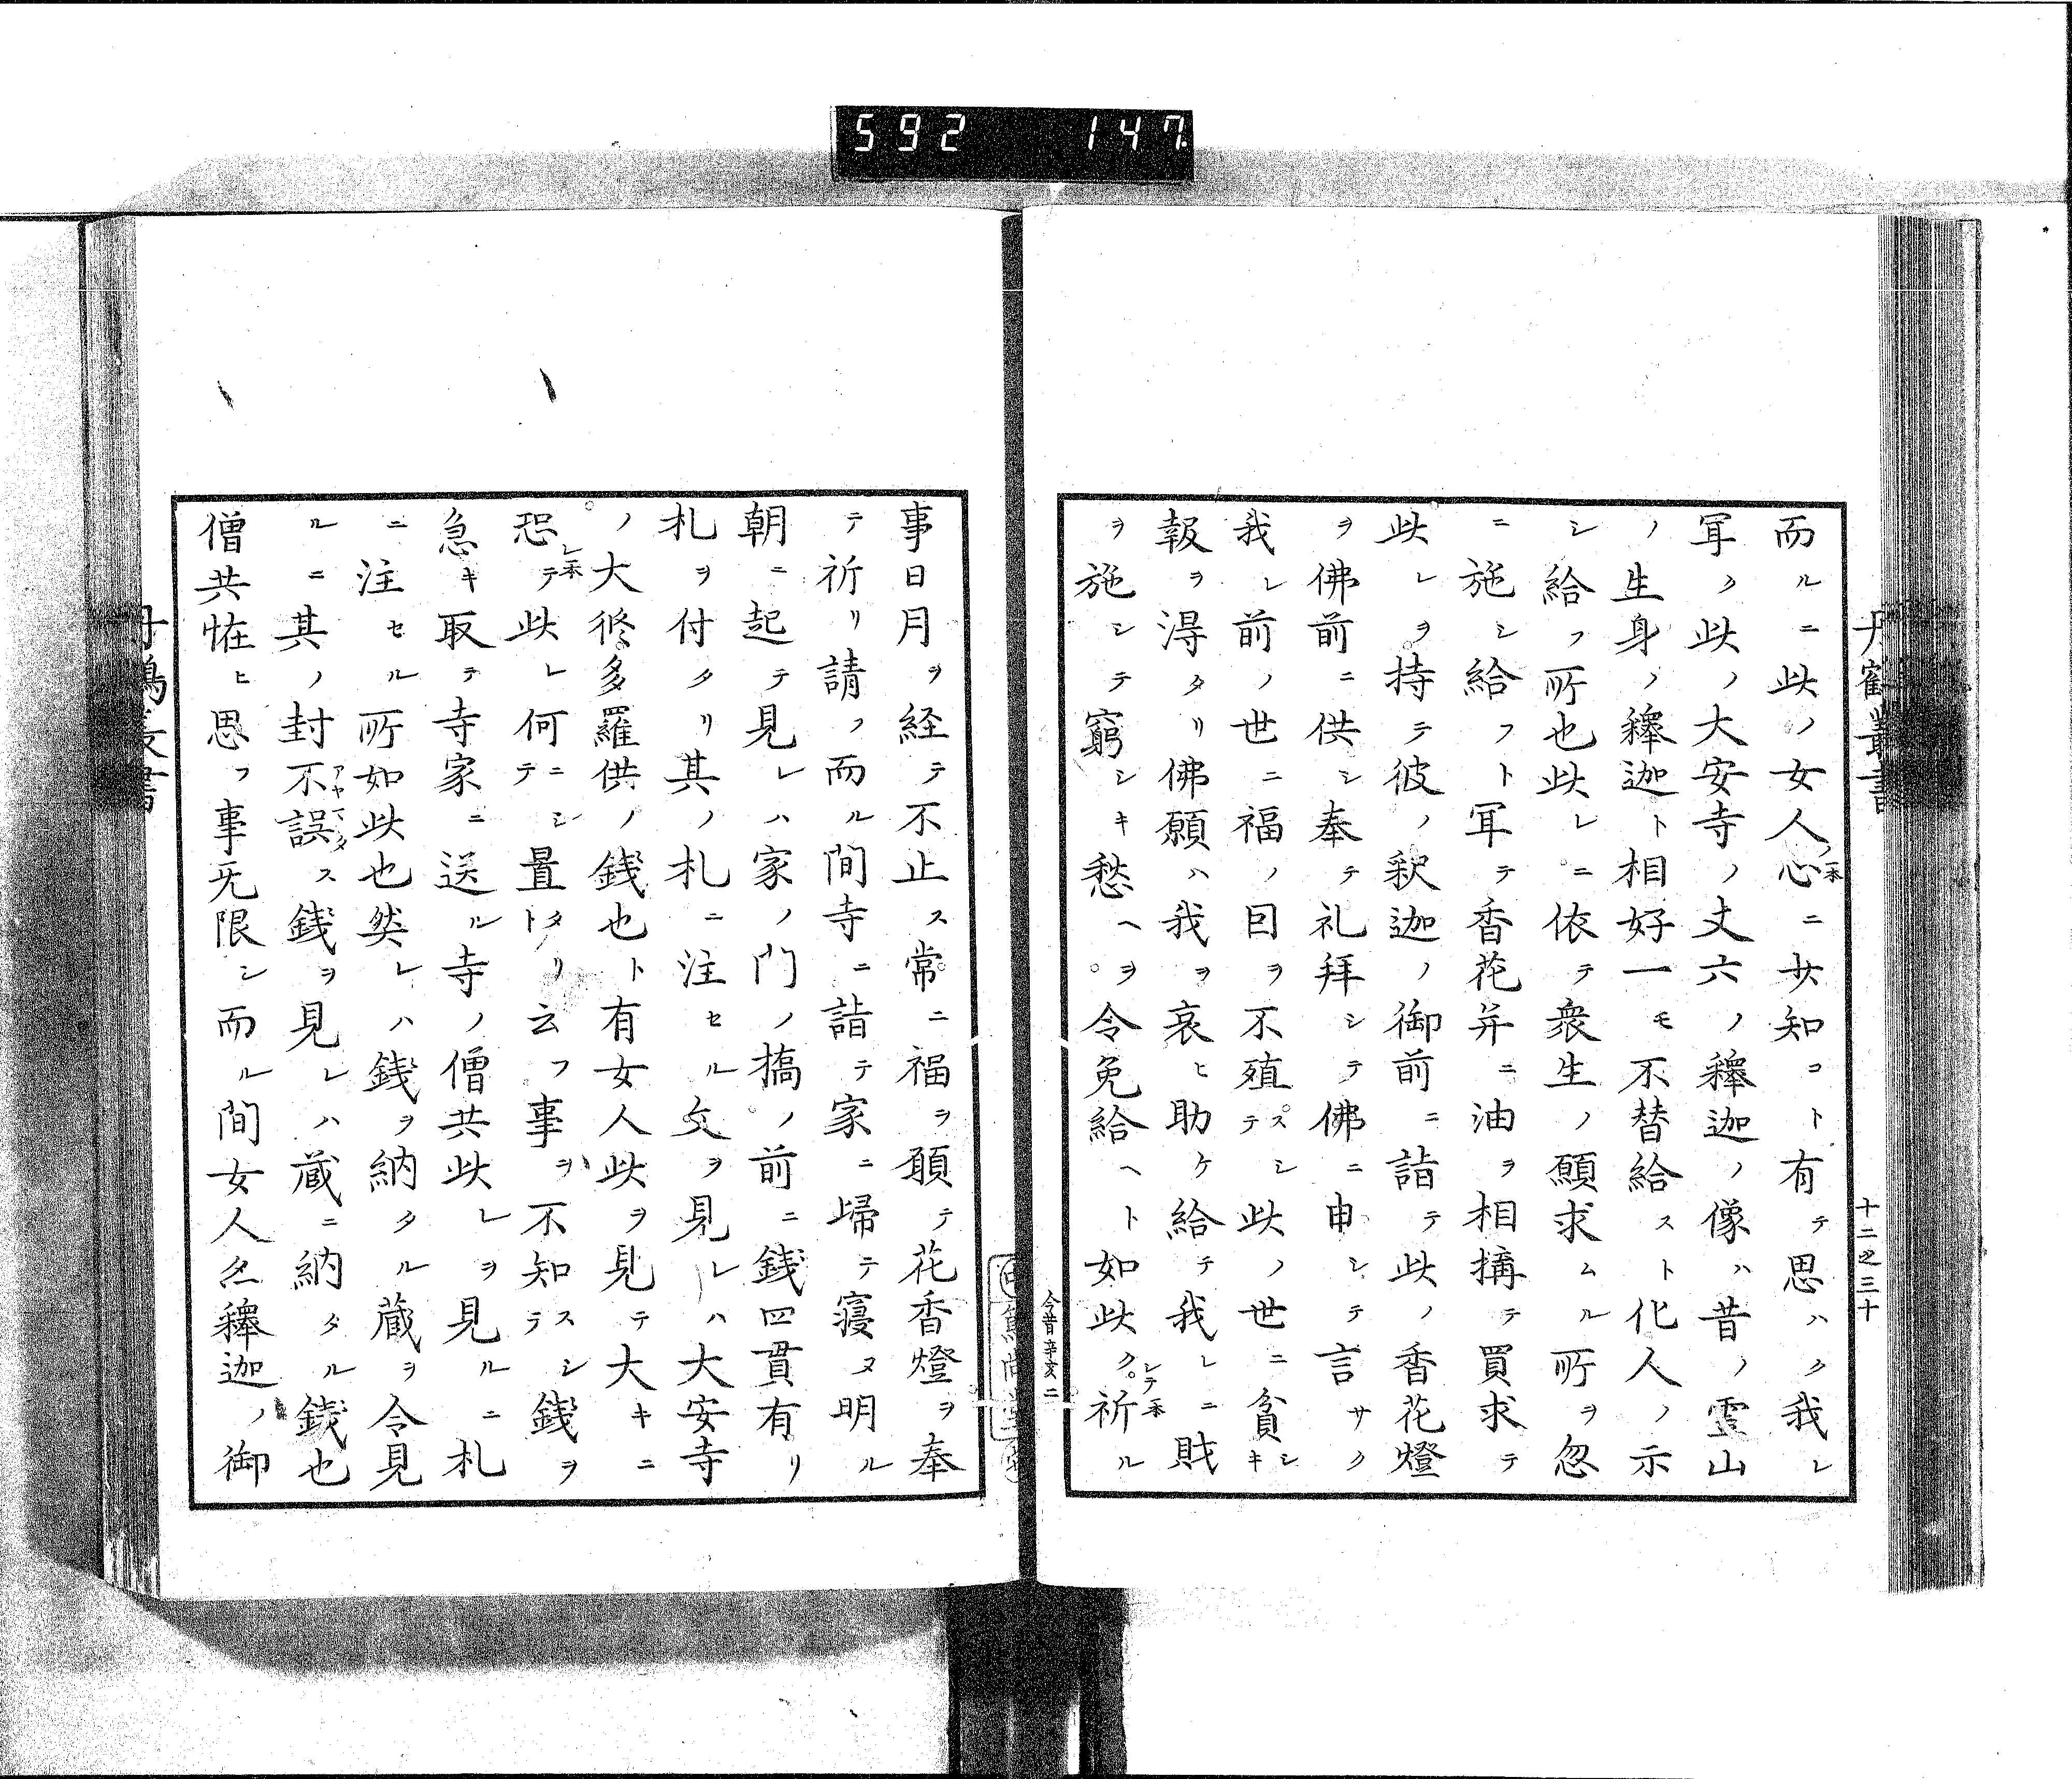 592 147
丹鶴叢書
十二之三十
而ルニ此ノ女人心ニ少知コト有テ思ハク我レ
ノ一本
耳ク此ノ大安寺ノ丈六ノ釋迦ノ像ハ昔ノ霊山
ノ生身ノ釋迦ト相好一モ不替給スト化人ノ示
シ給フ所也此レニ依テ衆生ノ願求ムル所ヲ忽
ニ施シ給フト耳テ香花并ニ油ヲ相搆テ買求テ
此レヲ持テ彼ノ釈迦ノ御前ニ詣テ此ノ香花燈
ヲ佛前ニ供シ奉テ礼拜シテ佛ニ申シテ言サク
我レ前ノ世ニ福ノ因ヲ不殖スシテ此ノ世ニ貧シキ
報ヲ淂タリ佛願ハ我ヲ哀ヒ助ケ給テ我レニ財
ヲ施シテ窮シキ愁ヘヲ令免給ヘト如此ク祈ル
シテ一本
今昔辛亥二
事日月ヲ経テ不止ス常ニ福ヲ願テ花香燈ヲ奉
テ祈リ請フ而ル間寺ニ詣テ家ニ歸テ寝ヌ明ル
朝ニ起テ見レハ家ノ門ノ橋ノ前ニ銭四貫有リ
札ヲ付タリ其ノ札ニ注セル文ヲ見レハ大安寺
ノ大修多羅供ノ銭也ト有女人此ヲ見テ大キニ
恐テ此レ何ニシテ置タリト云フ事ヲ不知スシテ銭ヲ
レ一本
急キ取テ寺家ニ送ル寺ノ僧共此レヲ見ルニ札
ニ注セル所如此也然レハ銭ヲ納タル蔵ヲ令見
ルニ其ノ封不誤ス銭ヲ見レハ蔵ニ納タル銭也
アヤマタ
僧共恠ヒ思フ事无限シ而ル間女人亦釋迦ノ御